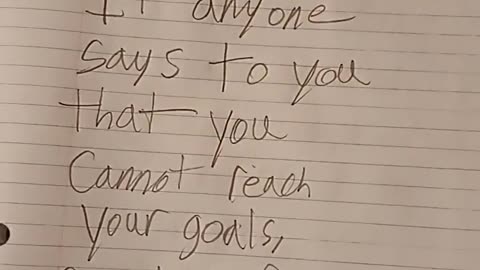 If anyone
says to you
that you
Cannot reach
your goals,